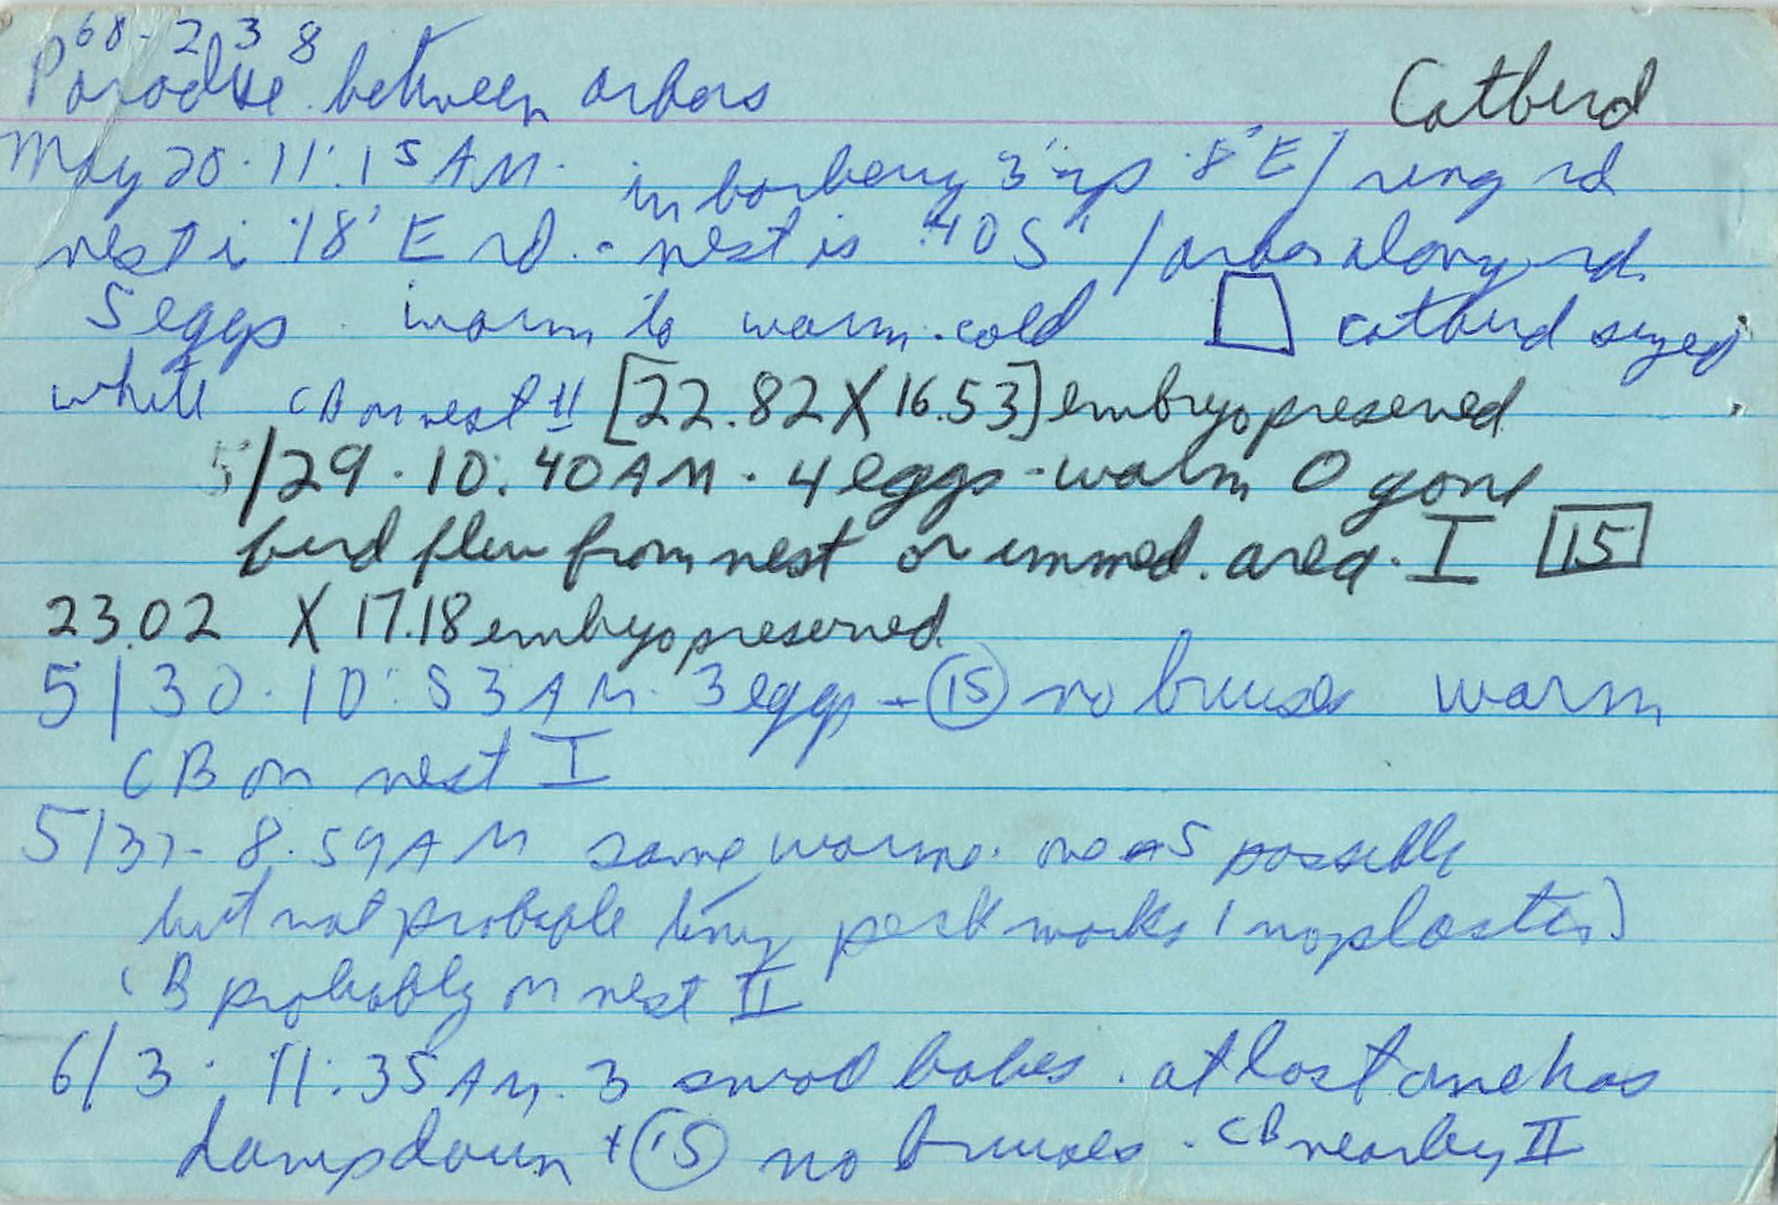 68-238
Paradise between arbors
Catbird
May 20. 11:15 AM. in barberry 3' up 8' E / ring rd
nest is 18' E rd. - nest is 40 S / arbor along rd.
5 eggs warm to warm-cold catbird sized
white CB on nest II [22.82 X 16.53] embryo preserved
5/29. 10:40 AM. 4 eggs - warm 0 gone
bird flew from nest or immed. area. I 15
23.02 X 17.18 embryo preserved
5/30. 10:53 AM. 3 eggs - 15 no bruises warm
CB on nest I
8:59 AM same warm. possible
but not probable tiny peck marks (no plaster)
CB probably on nest II
6/3. 11:35 AM. 3 small babes. at last one has
damp down + 15 no bruises. CB nearby II